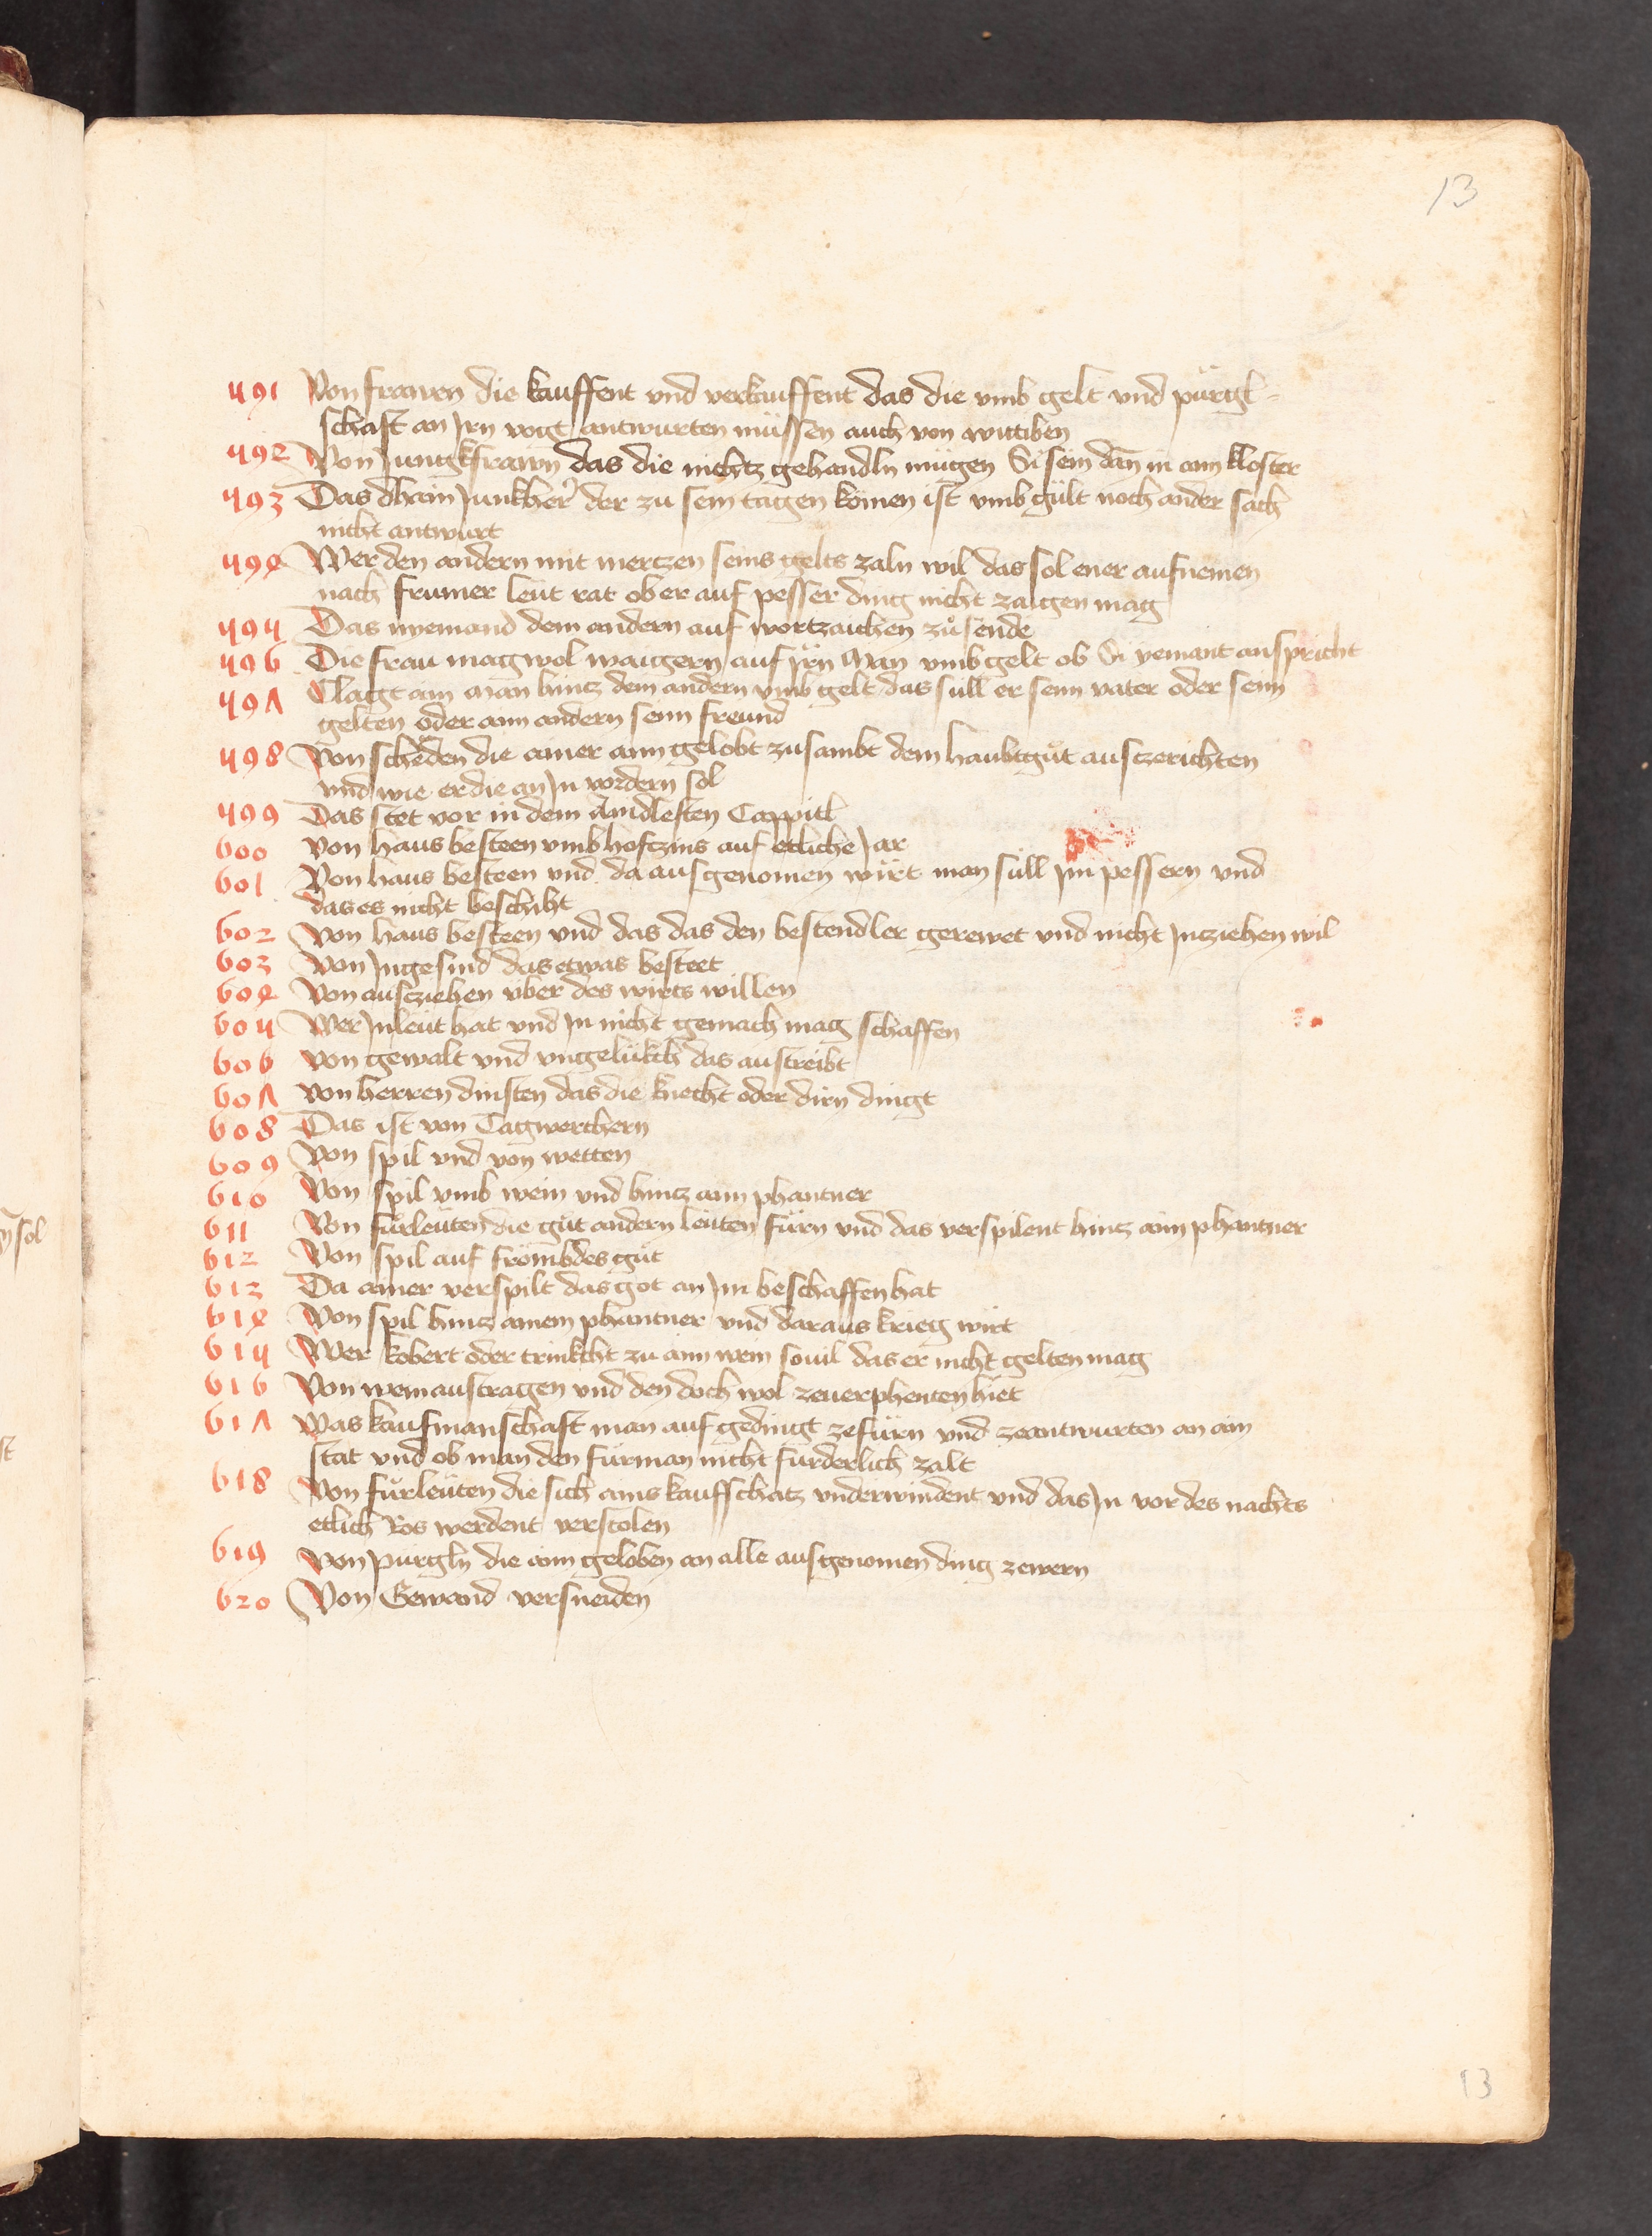 13
591 Von frawen die kauffent vnd verkauffent das die vmb gelt vnd pürgl-
schaft an Jrn vogt antwurten müssen auch von wittiben
592 Von Jungkfrawn das die nichtz gehandln mügen Si sein dan in aim kloster
593 Das dhain Junkher der zu sein tagen komen ist vmb gült noch ander sach
nicht antwurt
594 Wer den andern mit mertzen seins gelts zaln wil das sol ener aufnemen
nach frumer leüt rat ob er auf pesser ding nicht zaigen mag
595 Das nyemand dem andern auf wortzaichen zů sende
596 Die frau mag wol waigern auf Jrn Man vmb gelt ob Si yemant anspricht
597 Clagt ain man hintz dem andern vmb gelt das süll er seim vater oder seim
gelten oder aim andern seim freund
598 Von scheden die ainer aim gelobt zusambt dem haubtgůt ausczerichten
vnd wie er die an Jn vordern sol
599 Das stet vor in dem Aindleften Cappitl
600 Von haus besteen vmb hofczins auf etliche Jar
601 Von haus besteen vnd da ausgenomen wirt man süll Jm pessern vnd
das es nicht beschiht
602 Von haus besteen vnd das das den bestendler gerewet vnd nicht Jnziehen wil
603 Von Jngesind das etwas besteet
604 Von ausziehen vber des wirts willen
605 Wer Jnleut hat vnd Jn nicht gemach mag schaffen
606 Von gewalt vnd vngelükch das austreibt
607 Von herren dinsten das die knecht oder dirn dingt
608 Das ist von Tagwerchern
609 Von spil vnd von wetten
610 Von spil vmb wein vnd hintz aim phantner
611 Von fůrleüten die gůt andern leüten fürn vnd das verspilent hintz aim phantner
612 Von spil auf frömbdes gůt
613 Da ainer verspilt das got an Jm beschaffen hat
614 Von spil hintz ainem phantner vnd daraus krieg wirt
615 Wer kobert oder trinkcht zu aim wein souil das er nicht gelten mag
616 Von wein austragen vnd den doch wol zeuerphenten hiet
617 Was kaufmanschaft man auf gedingt zefürn vnd zeantwurten an ain
stat vnd ob man den fürman nicht furderlich zalt
618 Von fůrleüten die sich ains kaufschatz vnderwindent vnd das Jn vor des nachts
etlich Ros werdent verstolen
619 Von pürgln die aim geloben an alle ausgenomen ding zewern
620 Von Gewand versneiden
13